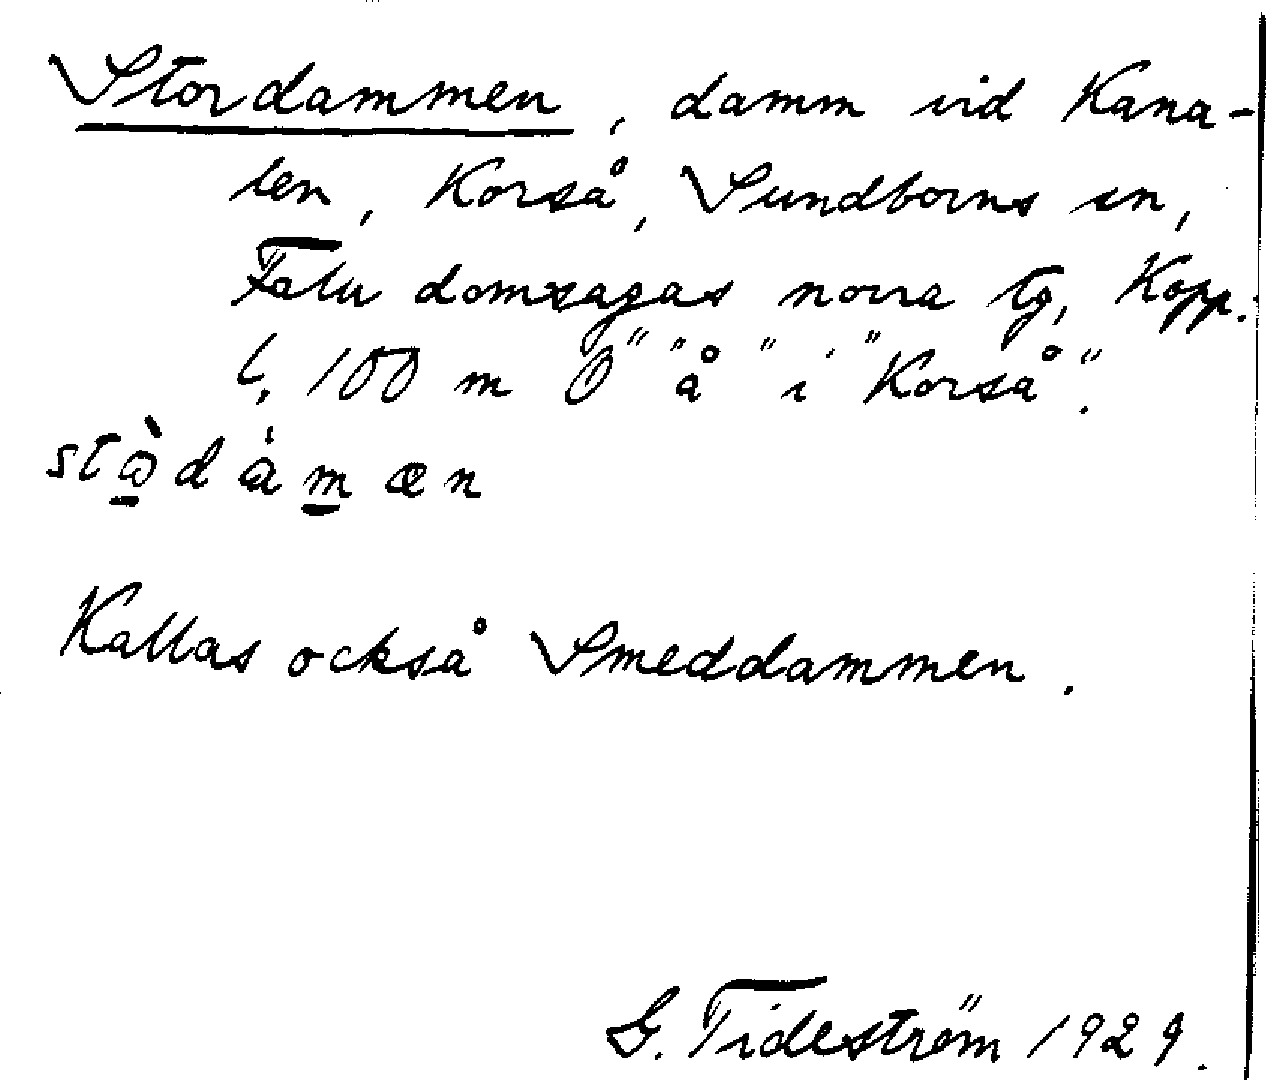 Stordammen, damm vid Kana-
len, Korså, Sundborns sn,
Falu domsagas norra tg, Kopp.
l, 100 m Ö "å" i "Korså".
Kallas också Smeddammen.
G. Tideström 1929.